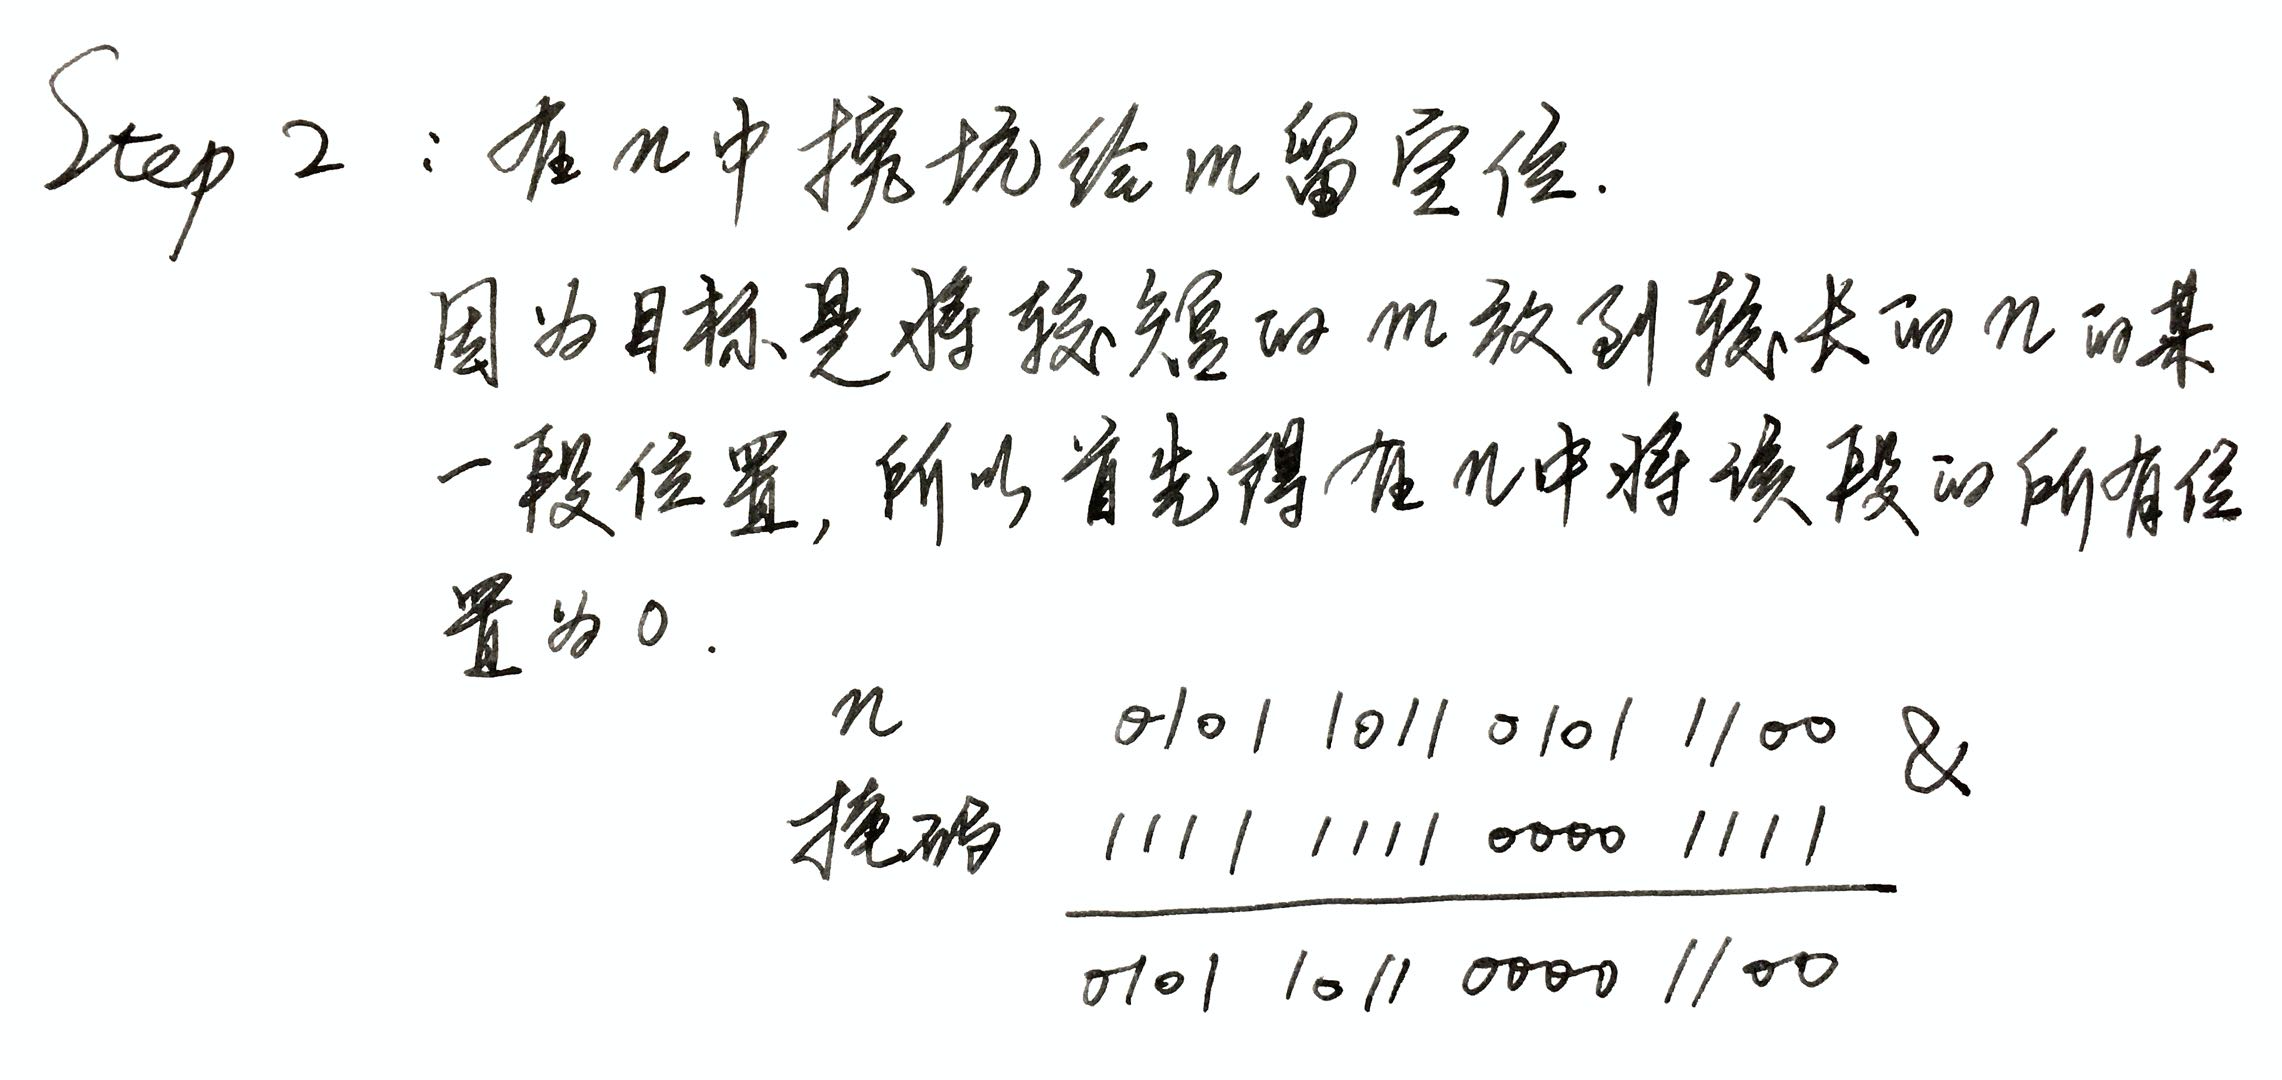 Step 2：在n中挖坑给m留空位.
因为目标是将较短的m放到较长的n的某
一段位置, 所以首先得在n中将该段的所有位
置为0.
n 0101 1011 0101 1100 &
掩码 1111 1111 0000 1111
0101 1011 0000 1100